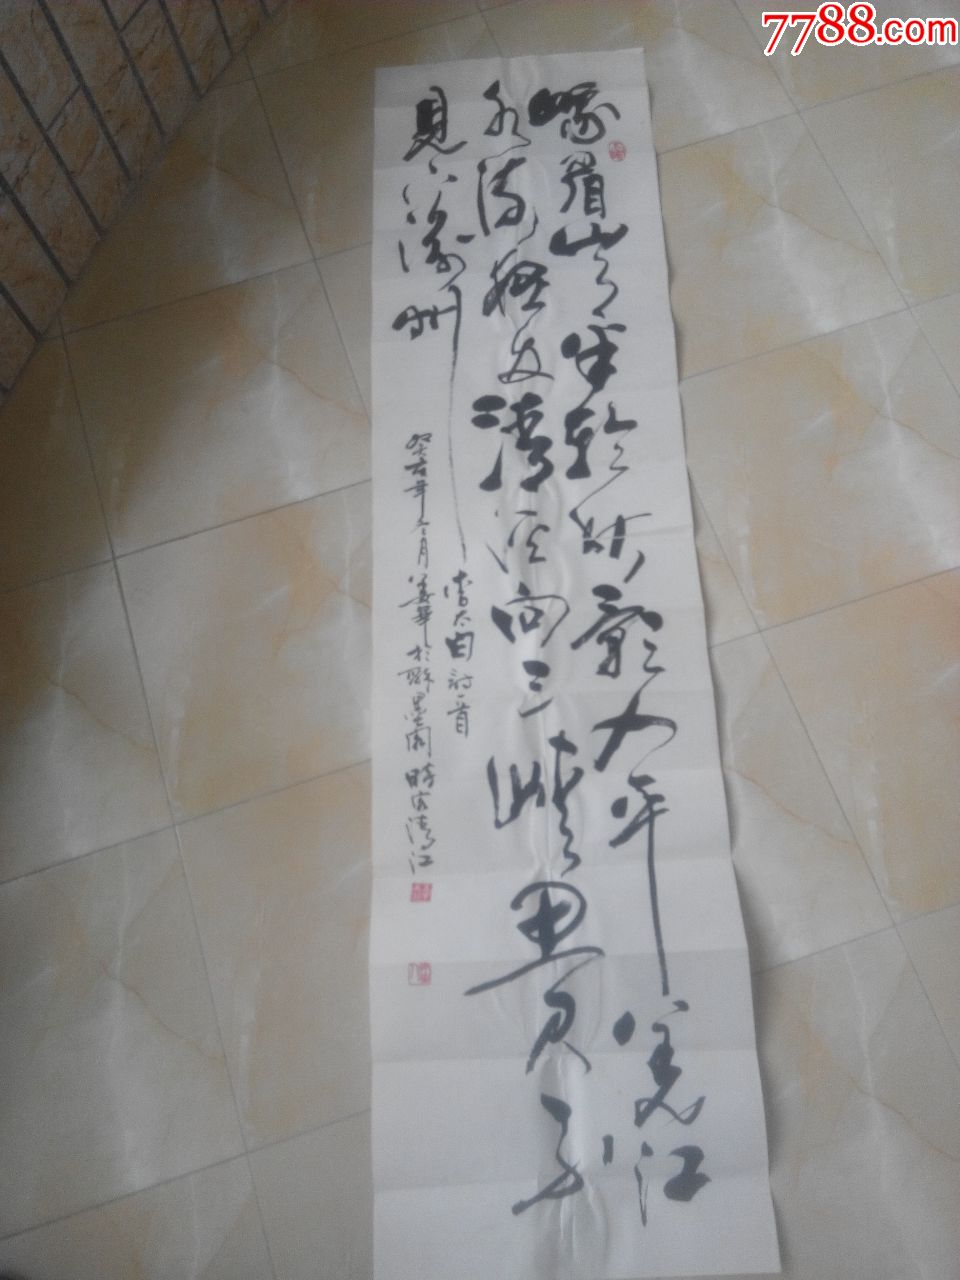 7788.com
峨眉山月半輪秋影入平羌江
水流夜發清溪向三峽思君不
見下渝州
李太白詩一首
年冬月 於 墨閣時客清江